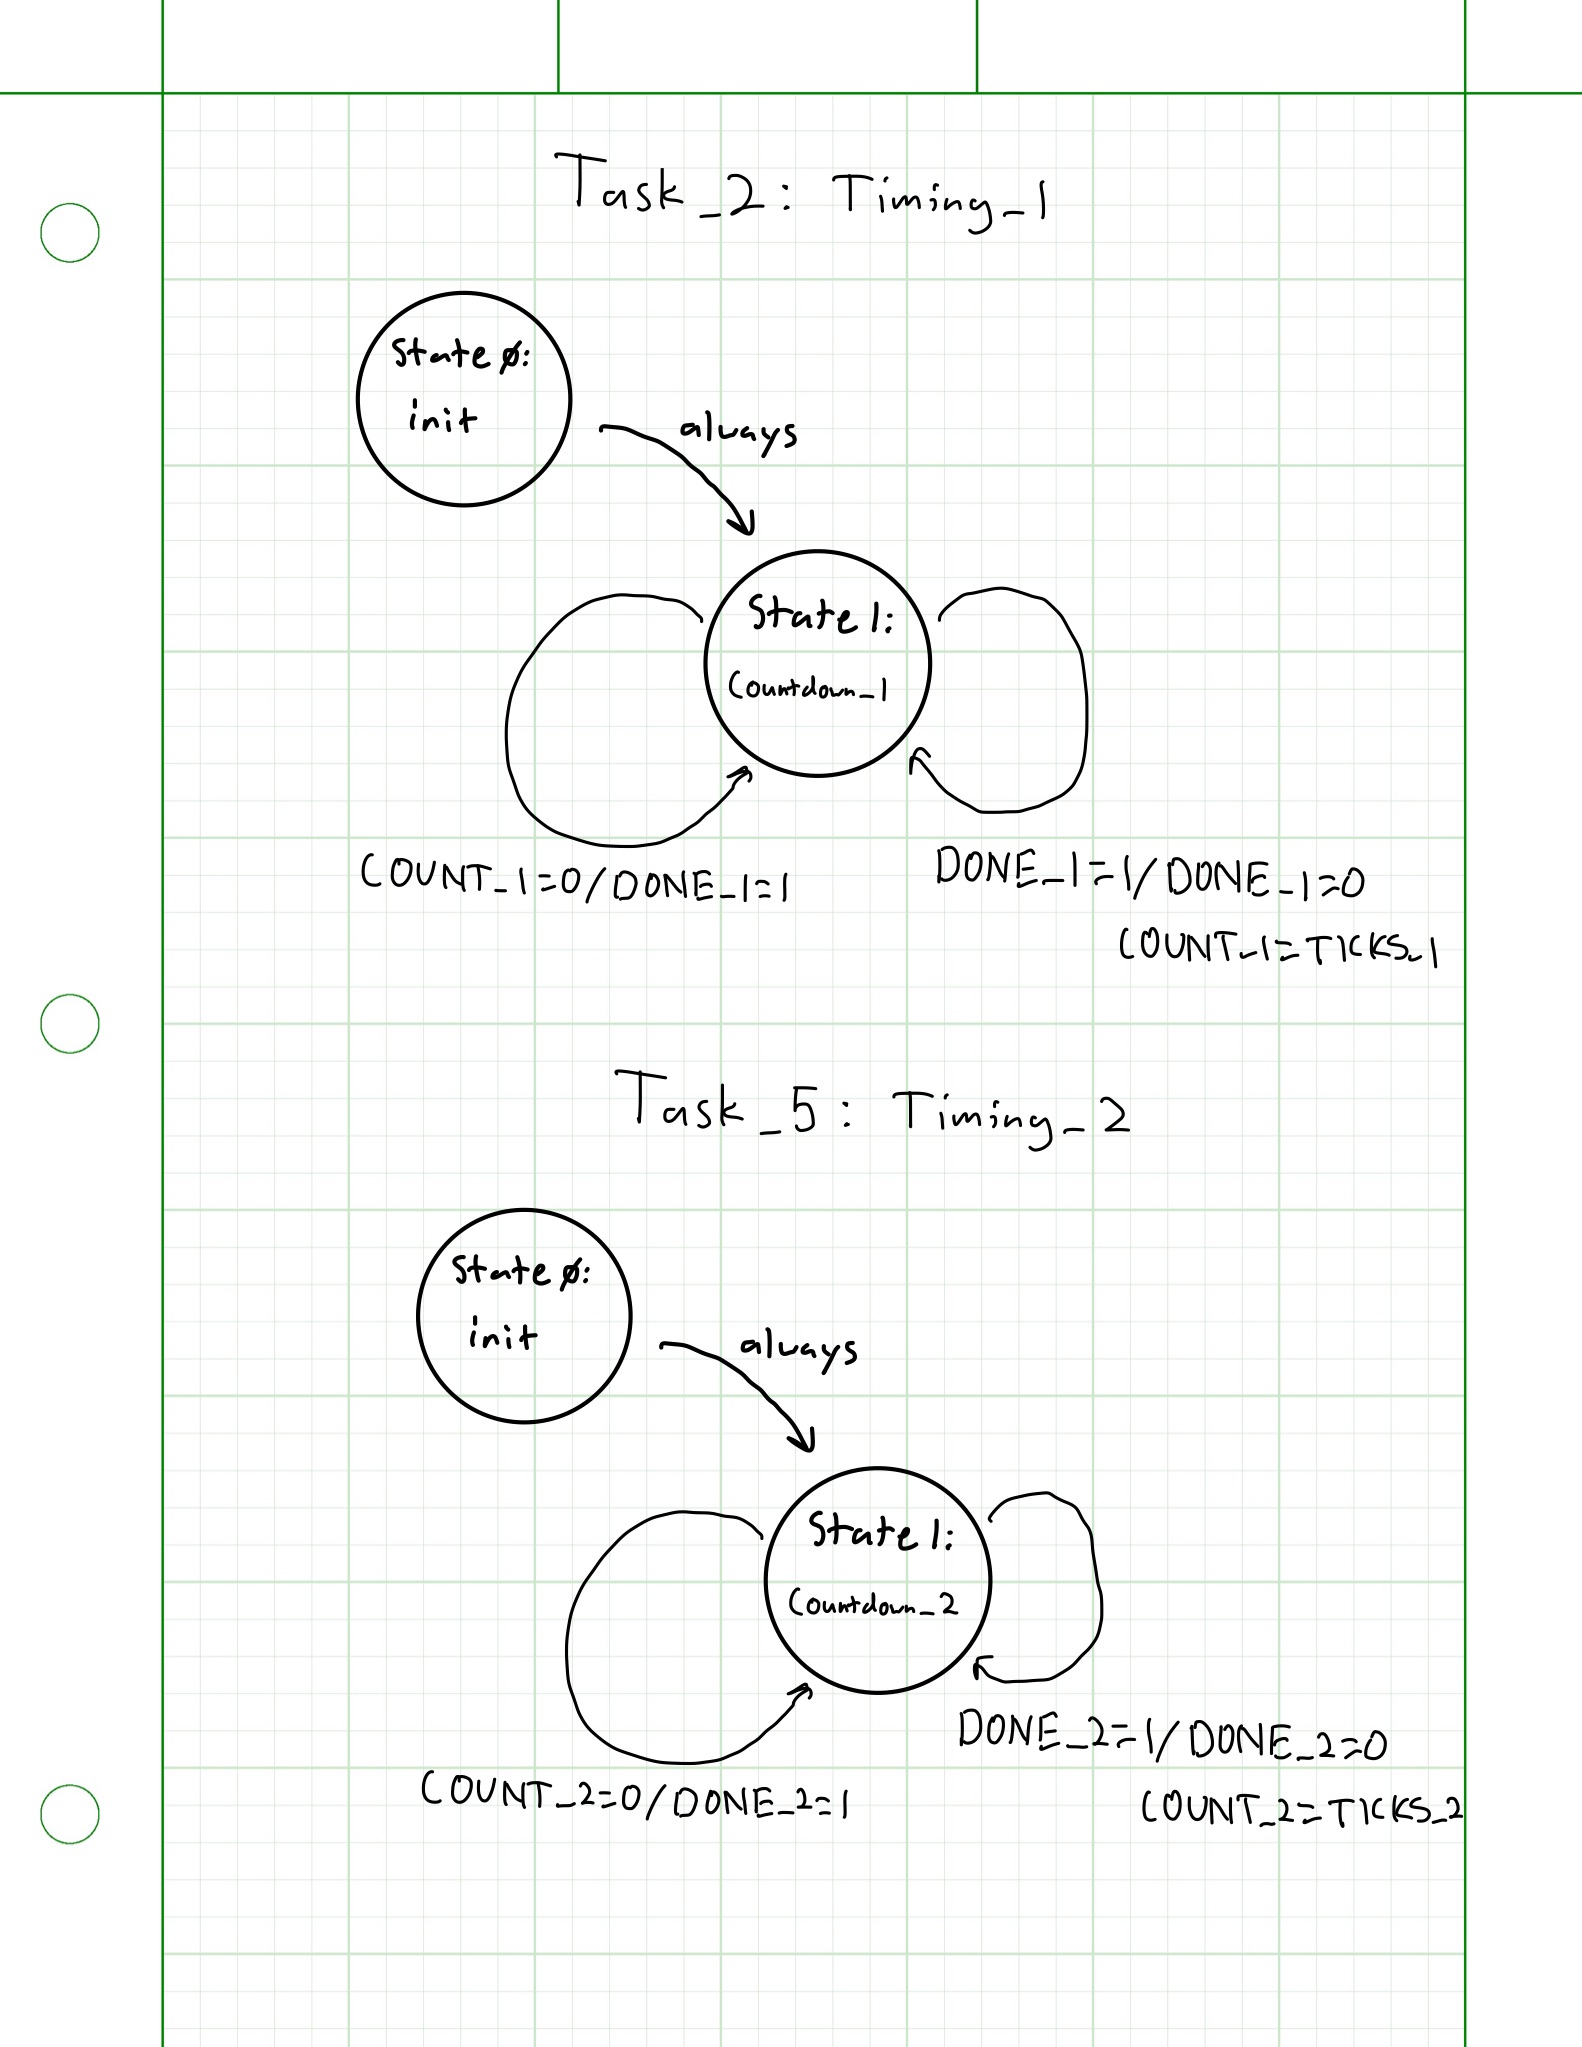 Task_2: Timing_1
State Ø:
init
always
State 1:
Countdown_1
COUNT_1=0/DONE_1=1
DONE_1=1/DONE_1=0
COUNT_1=TICKS_1
Task_5: Timing_2
State Ø:
init
always
State 1:
Countdown_2
DONE_2=1/DONE_2=0
COUNT_2=0/DONE_2=1
COUNT_2=TICKS_2